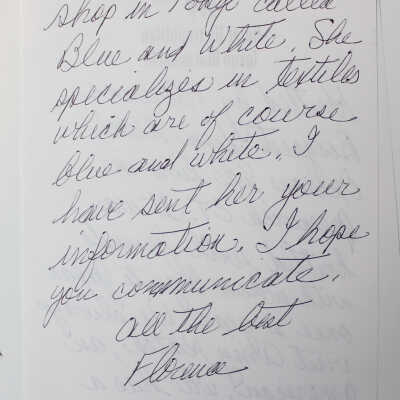 shop in Tokyo called
Blue and White. She
specializes in textiles
which are of course
blue and white. I
have sent her your
information. I hope
you communicate.
all the best
Florence